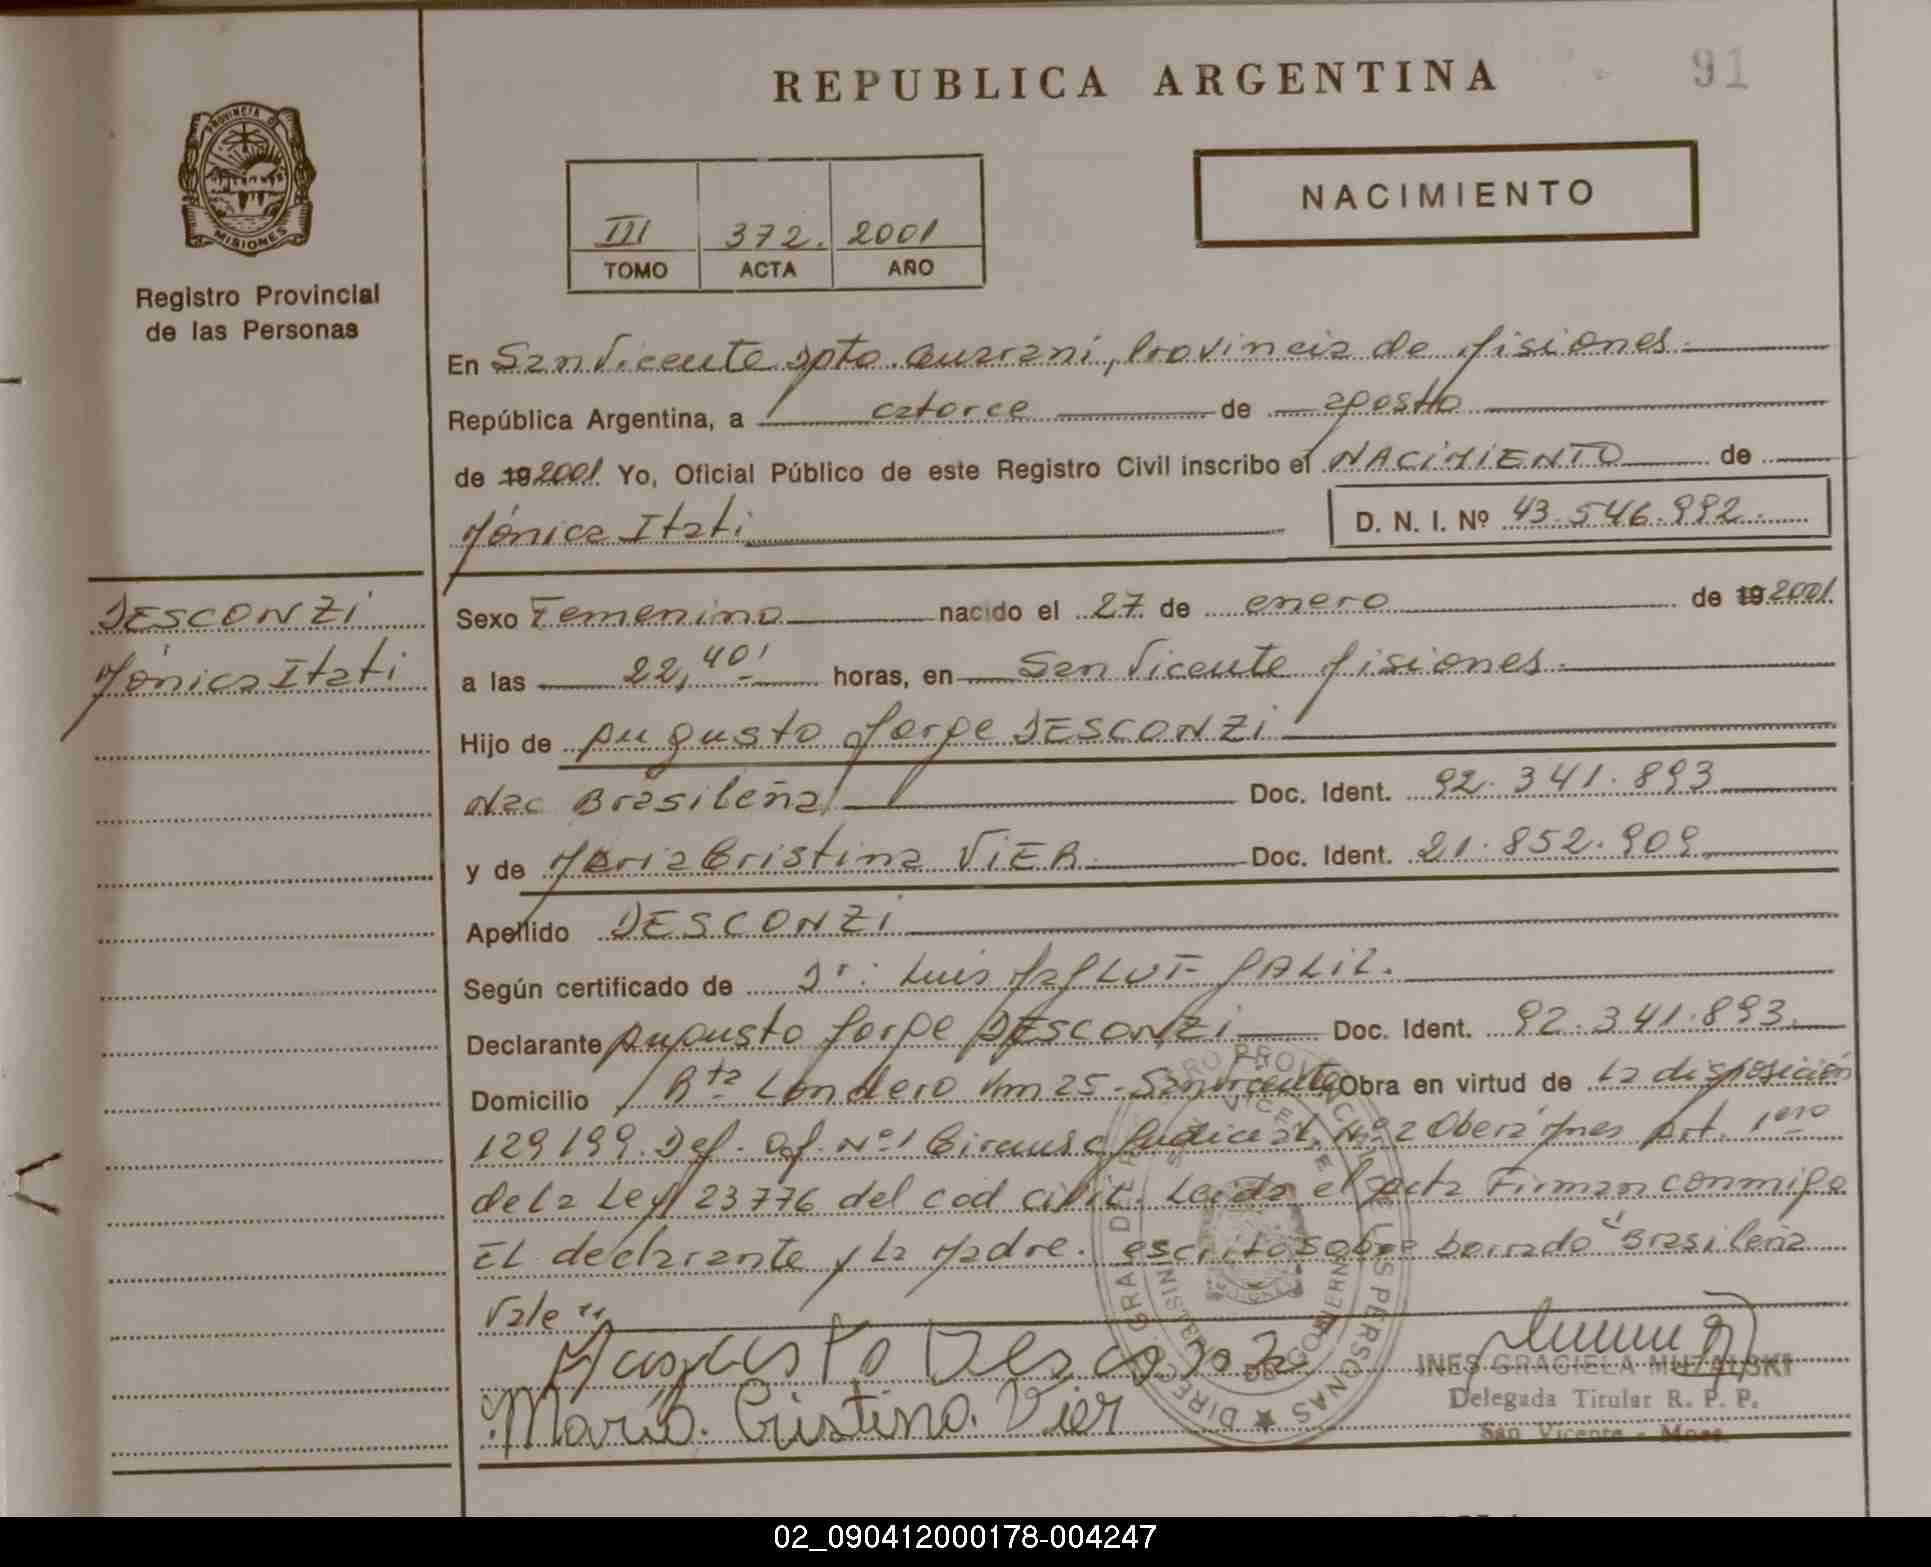 REPUBLICA ARGENTINA
91
PROVINCIA DE
MISIONES
Registro Provincial
de las Personas
NACIMIENTO
III 372. 2001
TOMO ACTA AÑO
En San Vicente Dpto. Guaraní, Provincia de Misiones.
República Argentina, a catorce de agosto
de 19 2001 Yo, Oficial Público de este Registro Civil inscribo el NACIMIENTO de
Mónica Itati D. N. I. Nº 43.546.992.
DESCONZI
Mónica Itati
Sexo Femenino nacido el 27 de enero de 19 2001.
a las 22,40' horas, en San Vicente Misiones.
Hijo de Augusto Jorge DESCONZI
Nac Brasileña Doc. Ident. 92.341.893
y de Maria Cristina VIER Doc. Ident. 21.852.909
Apellido DESCONZI
Según certificado de Dr: Luis GALIL.
Declarante Augusto Jorge DESCONZI Doc. Ident. 92.341.893.
Domicilio Rta Londero Km 25. San Vicente Obra en virtud de La disposición
129199. Def. Of. Nº1 Circunsc Judicial Nº2 Oberá Mnes Art. 1ero
de La Ley 23776 del cod civil. Leida el acta Firman conmigo
EL declarante y La Madre. escrito sobre borrado "Brasileña
Vale"
Augusto Desconzi
Maria. Cristina. Vier
INES GRACIELA MUZALSKI
Delegada Titular R. P. P.
San Vicente - Mnes.
02_090412000178-004247